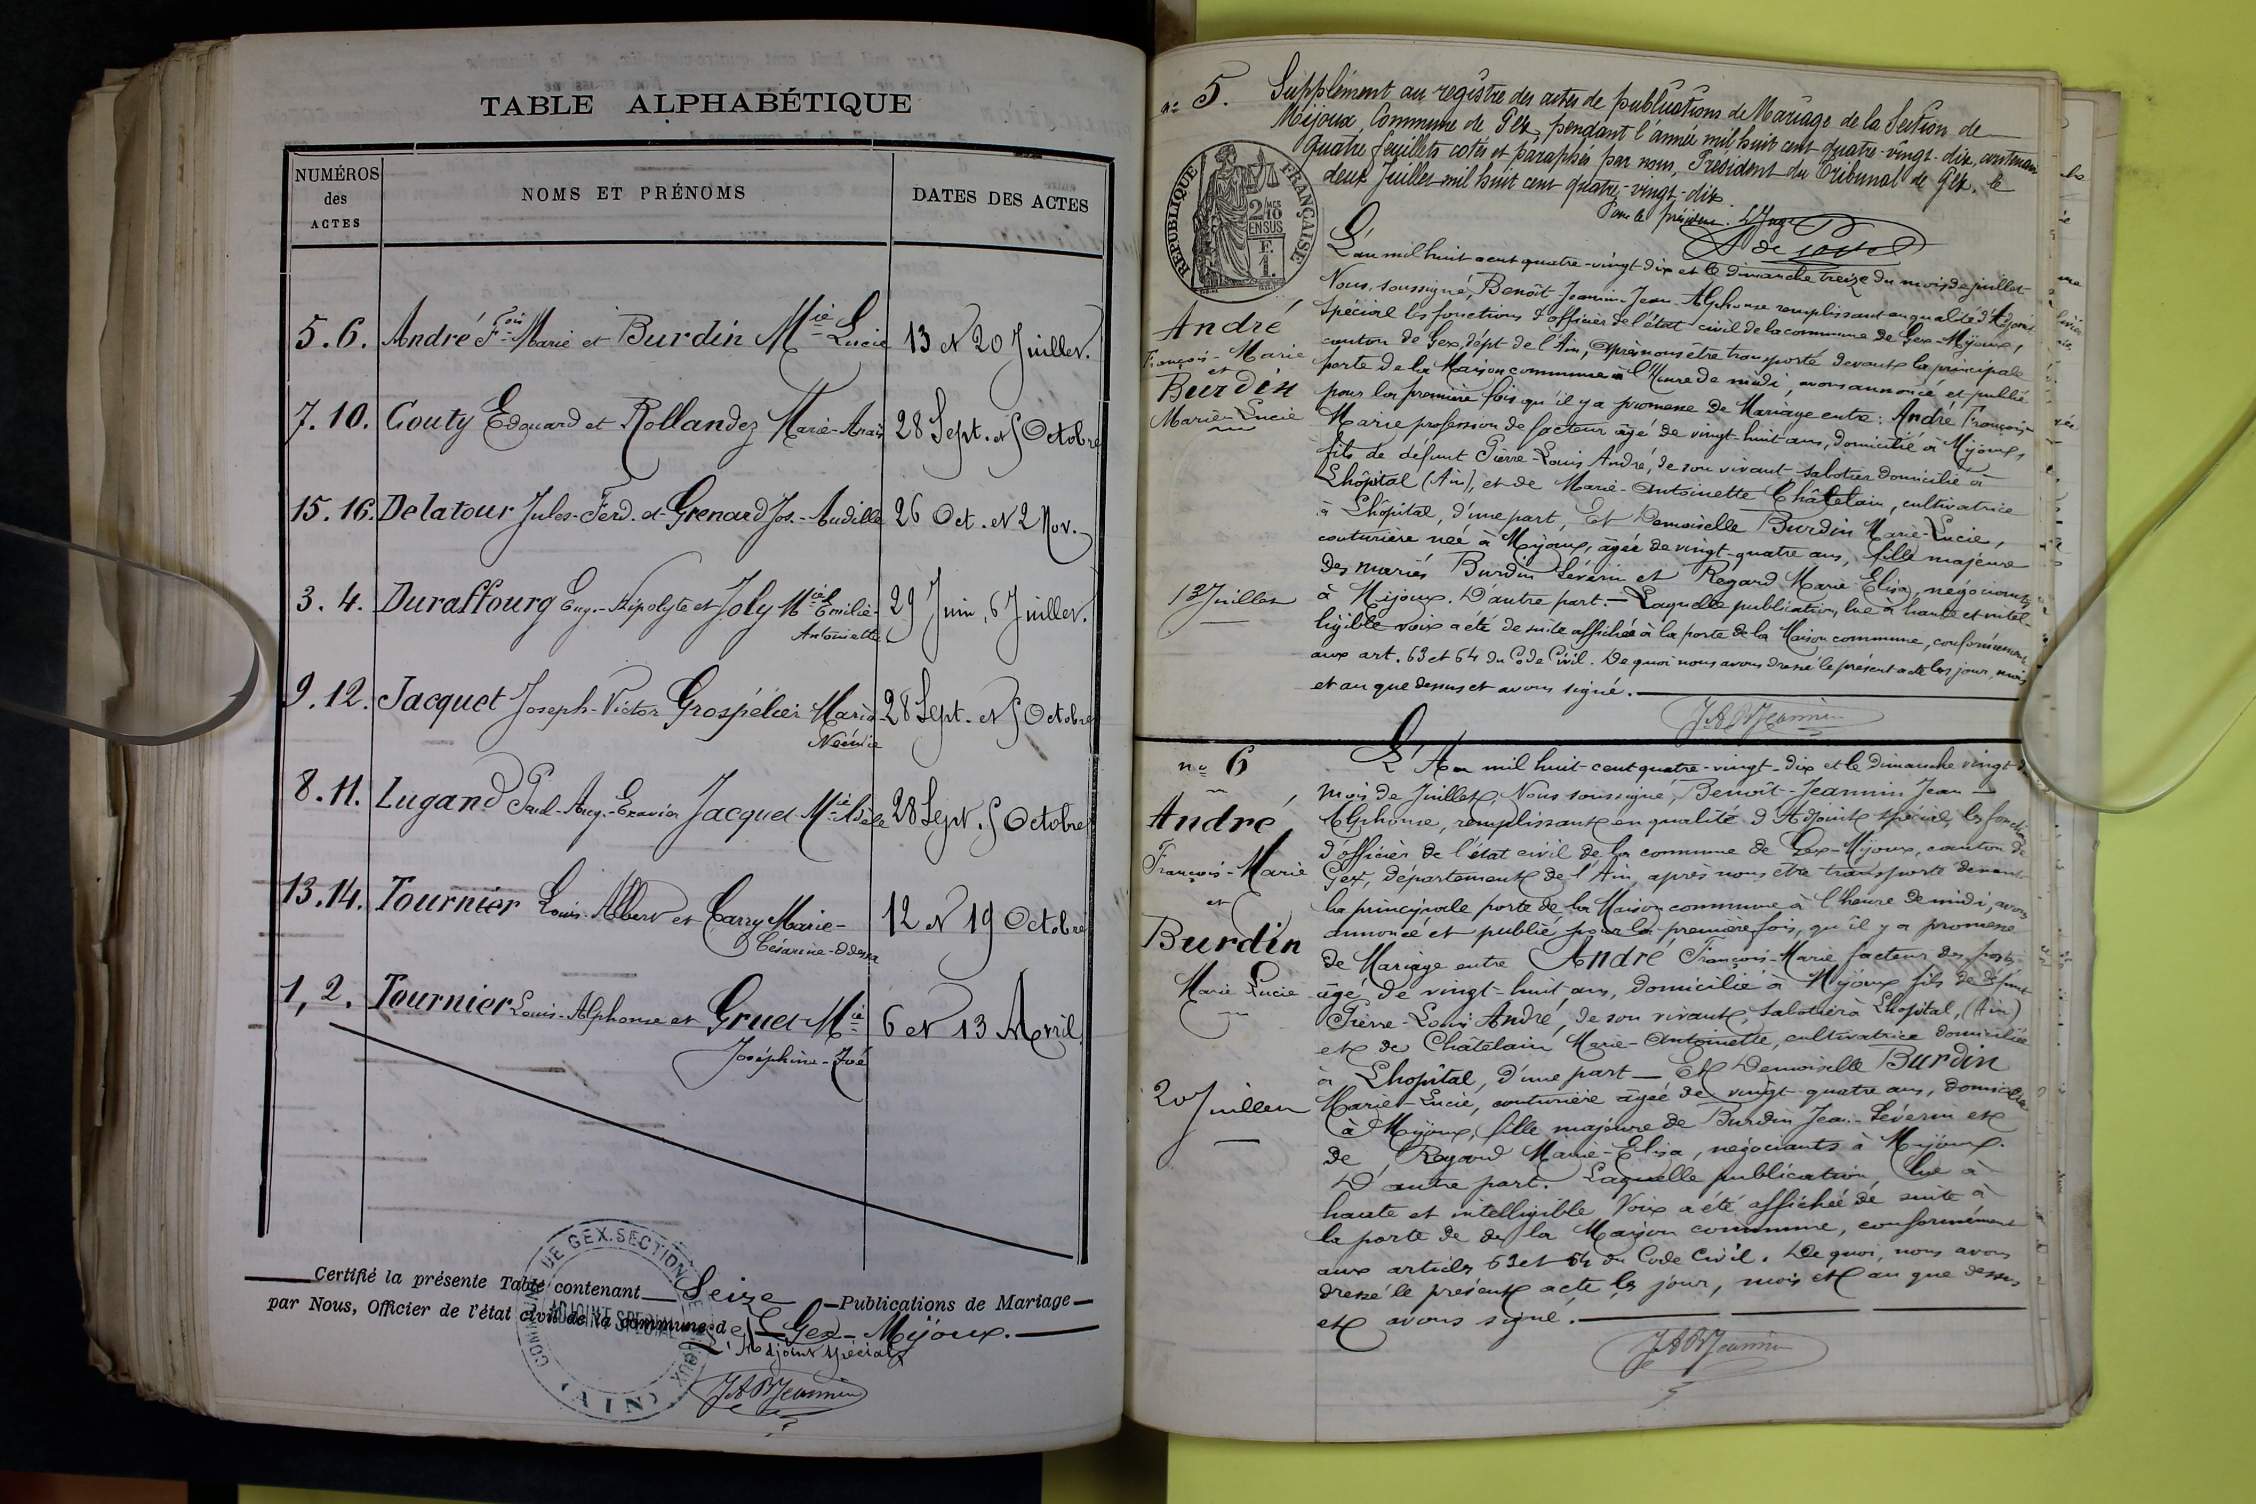 TABLE ALPHABÉTIQUE
NUMÉROS des ACTES
NOMS ET PRÉNOMS
DATES DES ACTES
5.6. André Fçois Marie et Burdin Mie Lucie 13 et 20 Juillet.
7.10. Gouty Edouard et Rollandez Marie-Anaïs 28 Sept. et 5 Octobre
15.16. Delatour Jules-Ferd. et Grenard Jos.-Audille 26 Oct. et 2 Nov.
3.4. Duraffourg Eug.-Hipolyte et Joly Mie Emilie-
Antoinette 29 Juin, 6 Juillet.
9.12. Jacquet Joseph-Victor Grospélier Marie-
Noémie 28 Sept. et 5 Octobre
8.11. Lugand Paul-Aug.-Exavier Jacquet Mie Adèle 28 Sept. 5 Octobre
13.14. Tournier Louis-Albert et Carry Marie-
Césarine-Odessa 12 et 19 Octobre
1,2. Tournier Louis-Alphonse et Gruet Mie
Joséphine-Zoé 6 et 13 Avril
Certifié la présente Table contenant Seize Publications de Mariage
par Nous, Officier de l'état civil de la commune de Gex-Mijoux.
L'Adjoint spécial
JABJeannin
COMMUNE DE GEX. SECTION DE MIJOUX
ADJOINT SPECIAL
(AIN)
no 5.
Supplément au registre des actes de publications de Mariage de la Section de
Mijoux, Commune de Gex, pendant l'année mil huit cent quatre-vingt-dix, contenant
quatre feuillets cotés et paraphés par nous, Président du Tribunal de Gex, le
deux Juillet mil huit cent quatre-vingt-dix
Pour le président. Le Juge
RÉPUBLIQUE FRANÇAISE
2/10 EN SUS
F. 1.
André
François-Marie
et
Burdin
Marie-Lucie
13 Juillet
L'an mil huit cent quatre-vingt dix et le dimanche treize du mois de juillet
Nous, soussigné, Benoît-Jeannin Jean-Alphonse remplissant en qualité d'Adjoint
spécial les fonctions d'officier de l'état civil de la commune de Gex-Mijoux,
canton de Gex, dépt de l'Ain, après nous être transporté devant la principale
porte de la Maison commune à l'heure de midi, avons annoncé et publié
pour la première fois qu'il y a promesse de Mariage entre: André, François-
Marie profession de facteur âgé de vingt-huit ans, domicilié à Mijoux,
fils de défunt Pierre-Louis André, de son vivant sabotier domicilié à
Lhôpital (Ain), et de Marie-Antoinette Châtelain, cultivatrice
à Lhôpital, d'une part, Et Demoiselle Burdin Marie-Lucie,
couturière née à Mijoux, âgée de vingt-quatre ans, fille majeure
des mariés Burdin Séverin et Regard Marie-Elisa, négociants
à Mijoux. D'autre part. — Laquelle publication, lue à haute et intel-
ligible voix a été de suite affichée à la porte de la Maison commune, conformément
aux art. 63 et 64 du Code Civil. De quoi nous avons dressé le présent acte les jour, mois
et an que dessus et avons signé.
JABJeannin
no 6
André
François-Marie
et
Burdin
Marie Lucie
20 Juillet
L'An mil huit-cent quatre-vingt-dix et le dimanche vingt du
mois de Juillet, Nous soussigné, Benoît-Jeannin Jean
Alphonse, remplissant en qualité d'Adjoint spécial, les fonctions
d'officier de l'état civil de la commune de Gex-Mijoux, canton de
Gex, département de l'Ain, après nous être transporté devant
la principale porte de la Maison commune à l'heure de midi, avons
annoncé et publié pour la première fois, qu'il y a promesse
de Mariage entre André François-Marie facteur des postes
âgé de vingt-huit ans, domicilié à Mijoux fils de défunt
Pierre-Louis André, de son vivant, sabotier à Lhopital, (Ain)
et de Châtelain Marie-Antoinette, cultivatrice domiciliée
à Lhopital, d'une part — Et Demoiselle Burdin
Marie-Lucie, couturière âgée de vingt-quatre ans, domiciliée
à Mijoux, fille majeure de Burdin Jean-Séverin et
de Regard Marie-Elisa, négociants à Mijoux.
D'autre part. Laquelle publication, lue à
haute et intelligible Voix a été affichée de suite à
la porte de de la Maison commune, conformément
aux articles 63 et 64 du Code Civil. De quoi, nous avons
dressé le présent acte les jour, mois et an que dessus
et avons signé.
JABJeannin